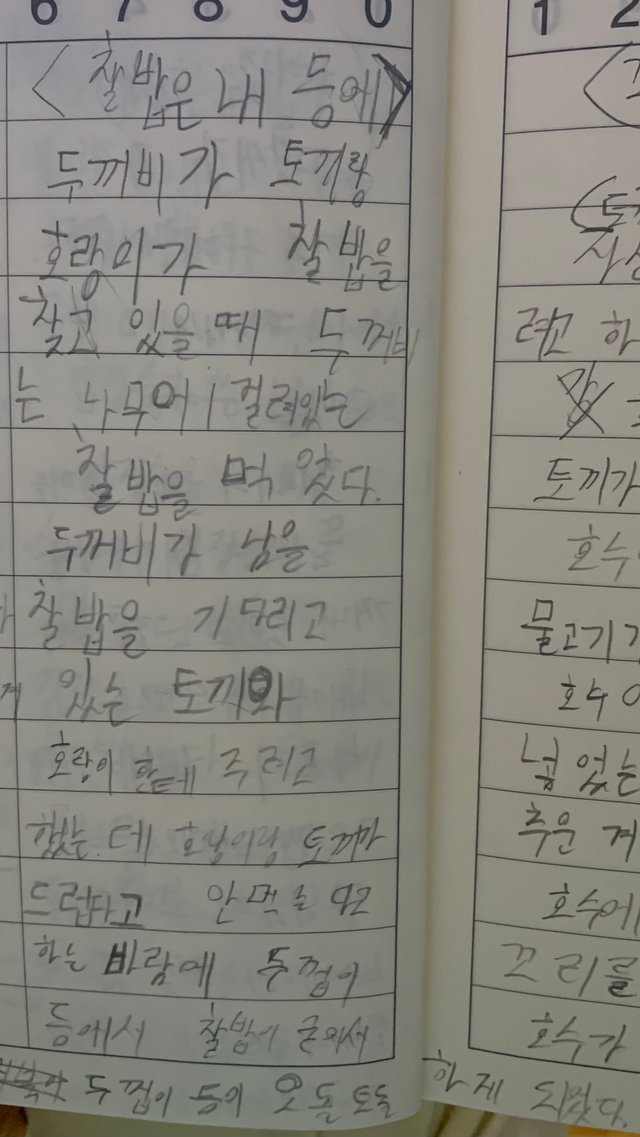 6 7 8 9 0
<찰밥은 내 등에>
두꺼비가 토끼랑
호랑이가 찰밥을
찾고 있을때 두꺼비
는 나무에 걸려있는
찰밥을 먹었다.
두꺼비가 남은
찰밥을 기다리고
있는 토끼와
호랑이 한테 주려고
했는데 호랑이랑 토끼가
드럽다고 안먹는
하는 바람에 두껍이
등에서 찰밥이 굳어서
두껍이 등이 오돌토돌
하게 되었다.
1 2
려고 하
토끼가
호수
물고기가
호수
넓 없는
추운 겨
호수에
꼬리를
호수가